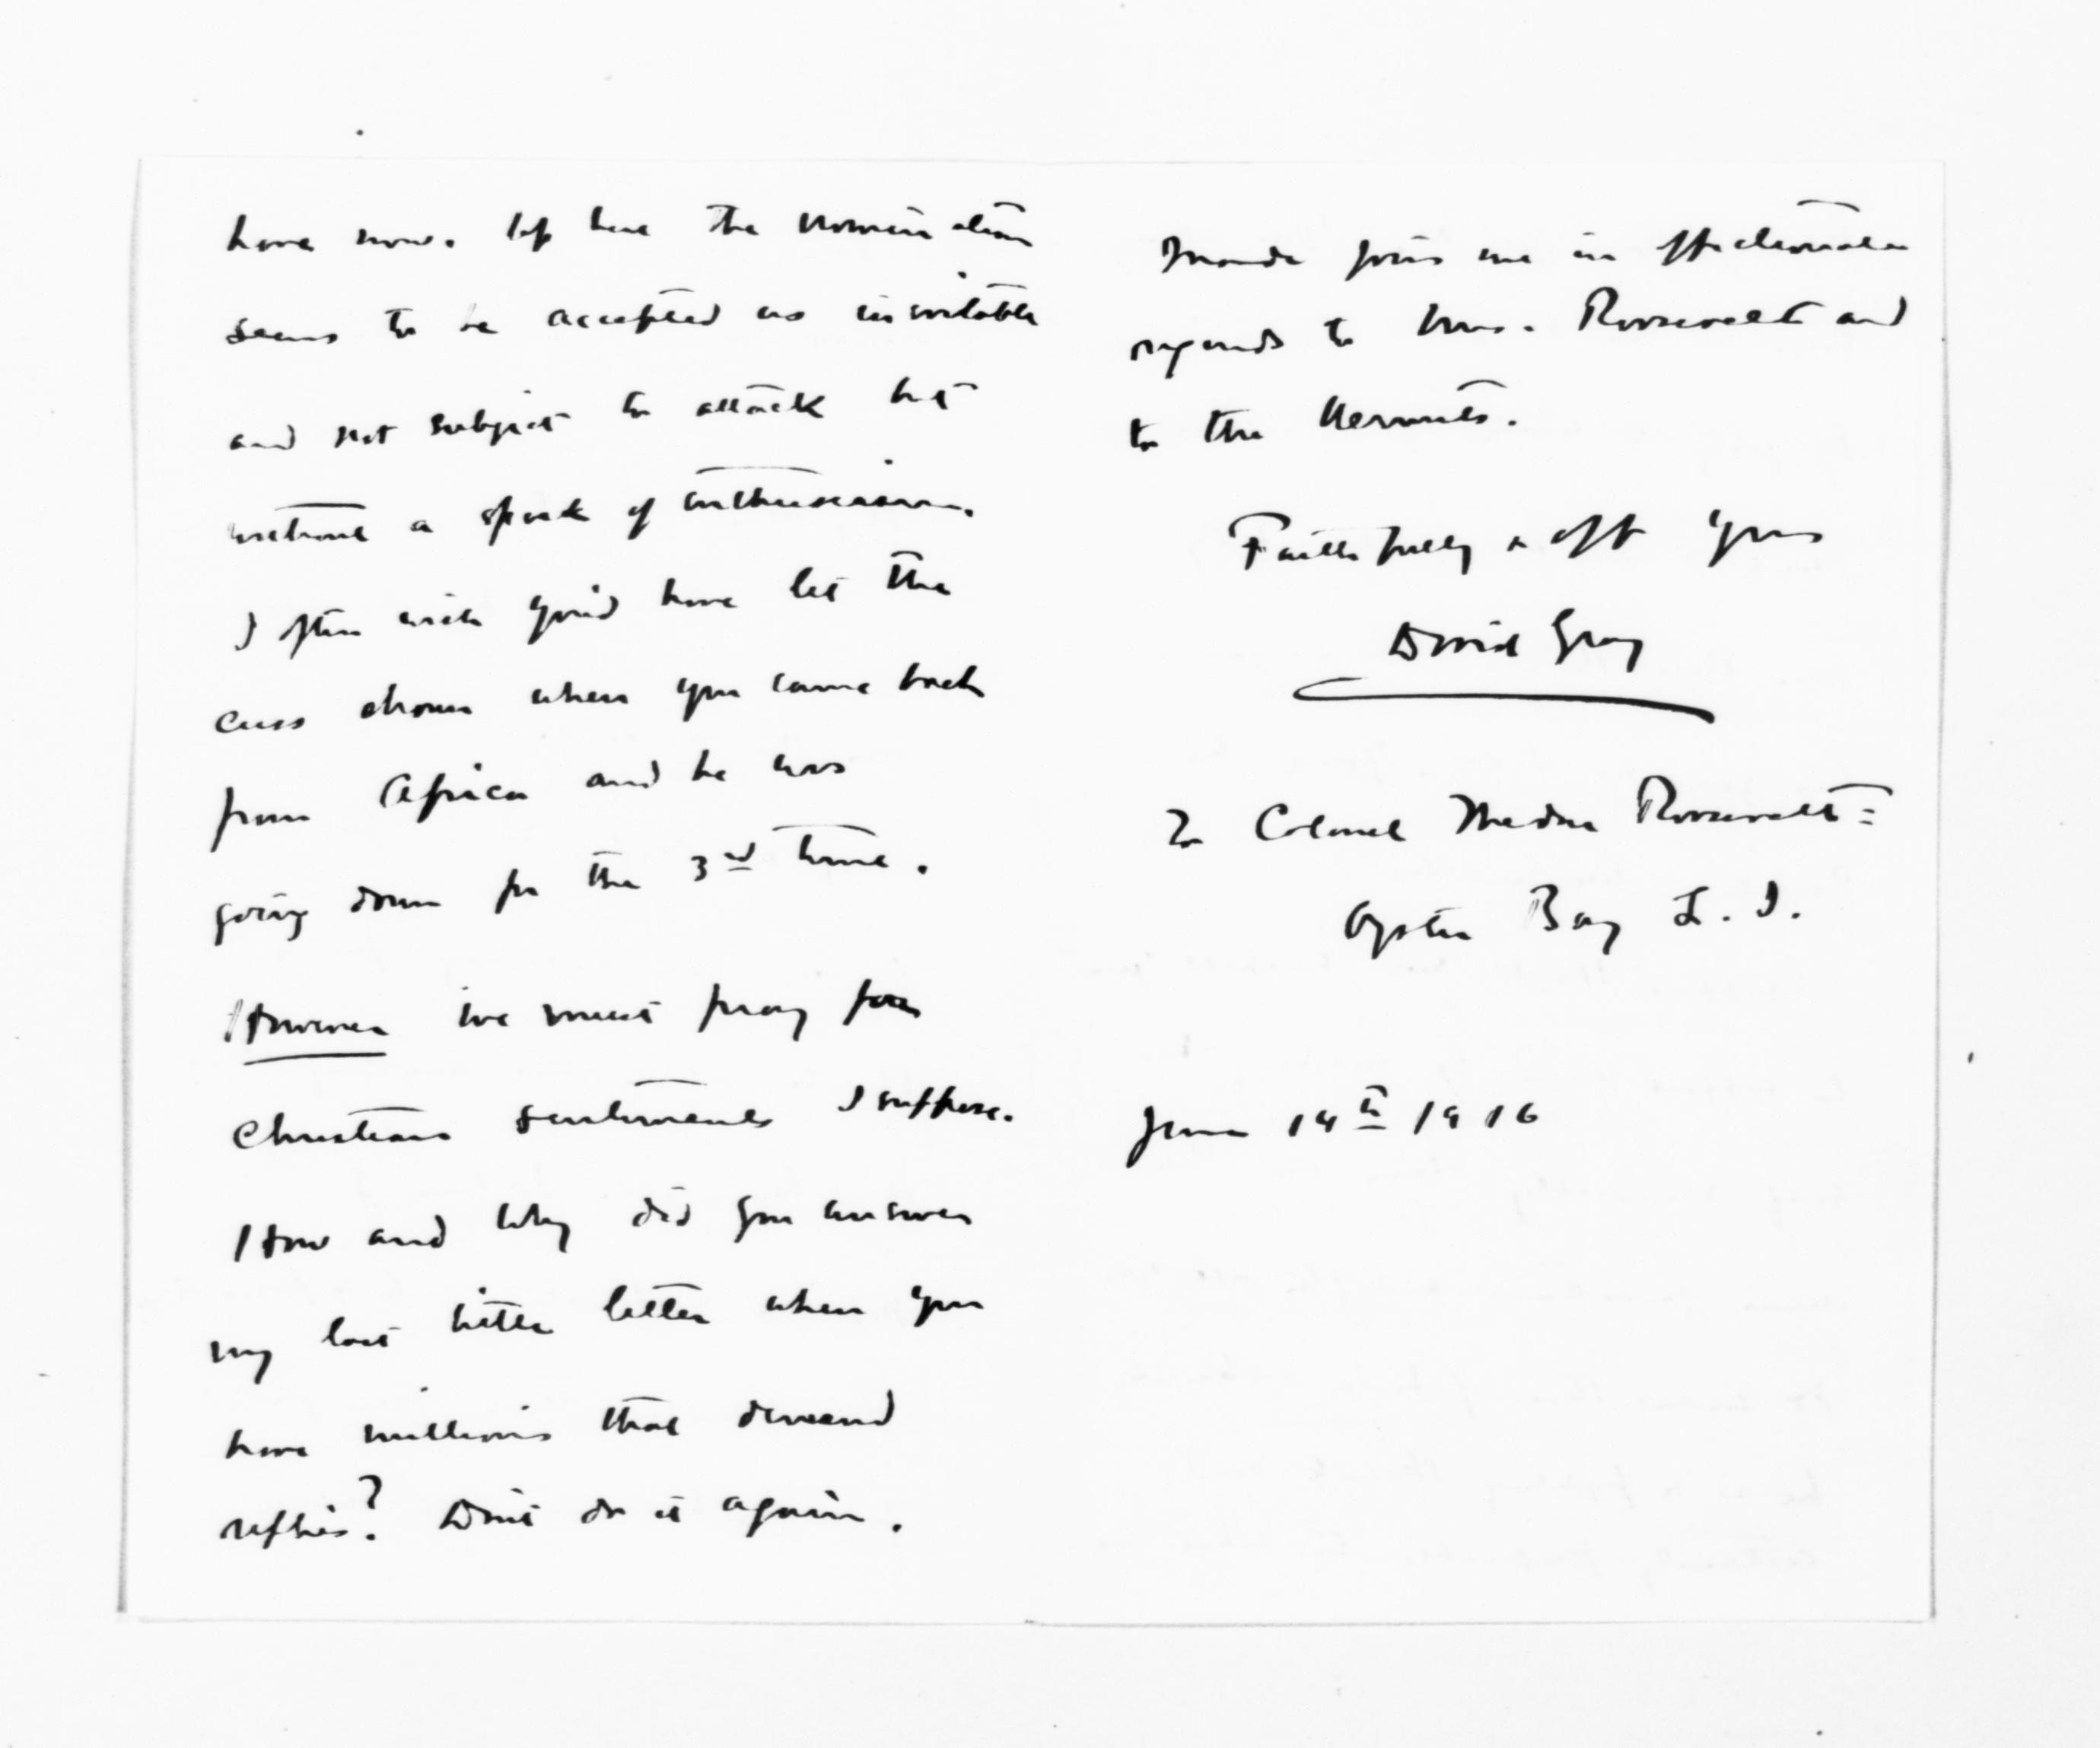 have now. Up here the nomination
seems to be accepted as inevitable
and not subject to attack but
without a spark of enthusiasm.
I often wish you'd have let the
cuss drown when you came back
from Africa and he was
going down for the 3rd time.
However we must pray for
Christian sentiments I suppose.
How and why did you answer
my last letter when you
have millions that demand
replies? Don't do it again.
Maude joins me in affectionate
regards to Mrs. Roosevelt and
to the Kermits.
Faithfully & aff yours
David Gray
To Colonel Theodore Roosevelt =
Oyster Bay L. I.
June 14th 1916